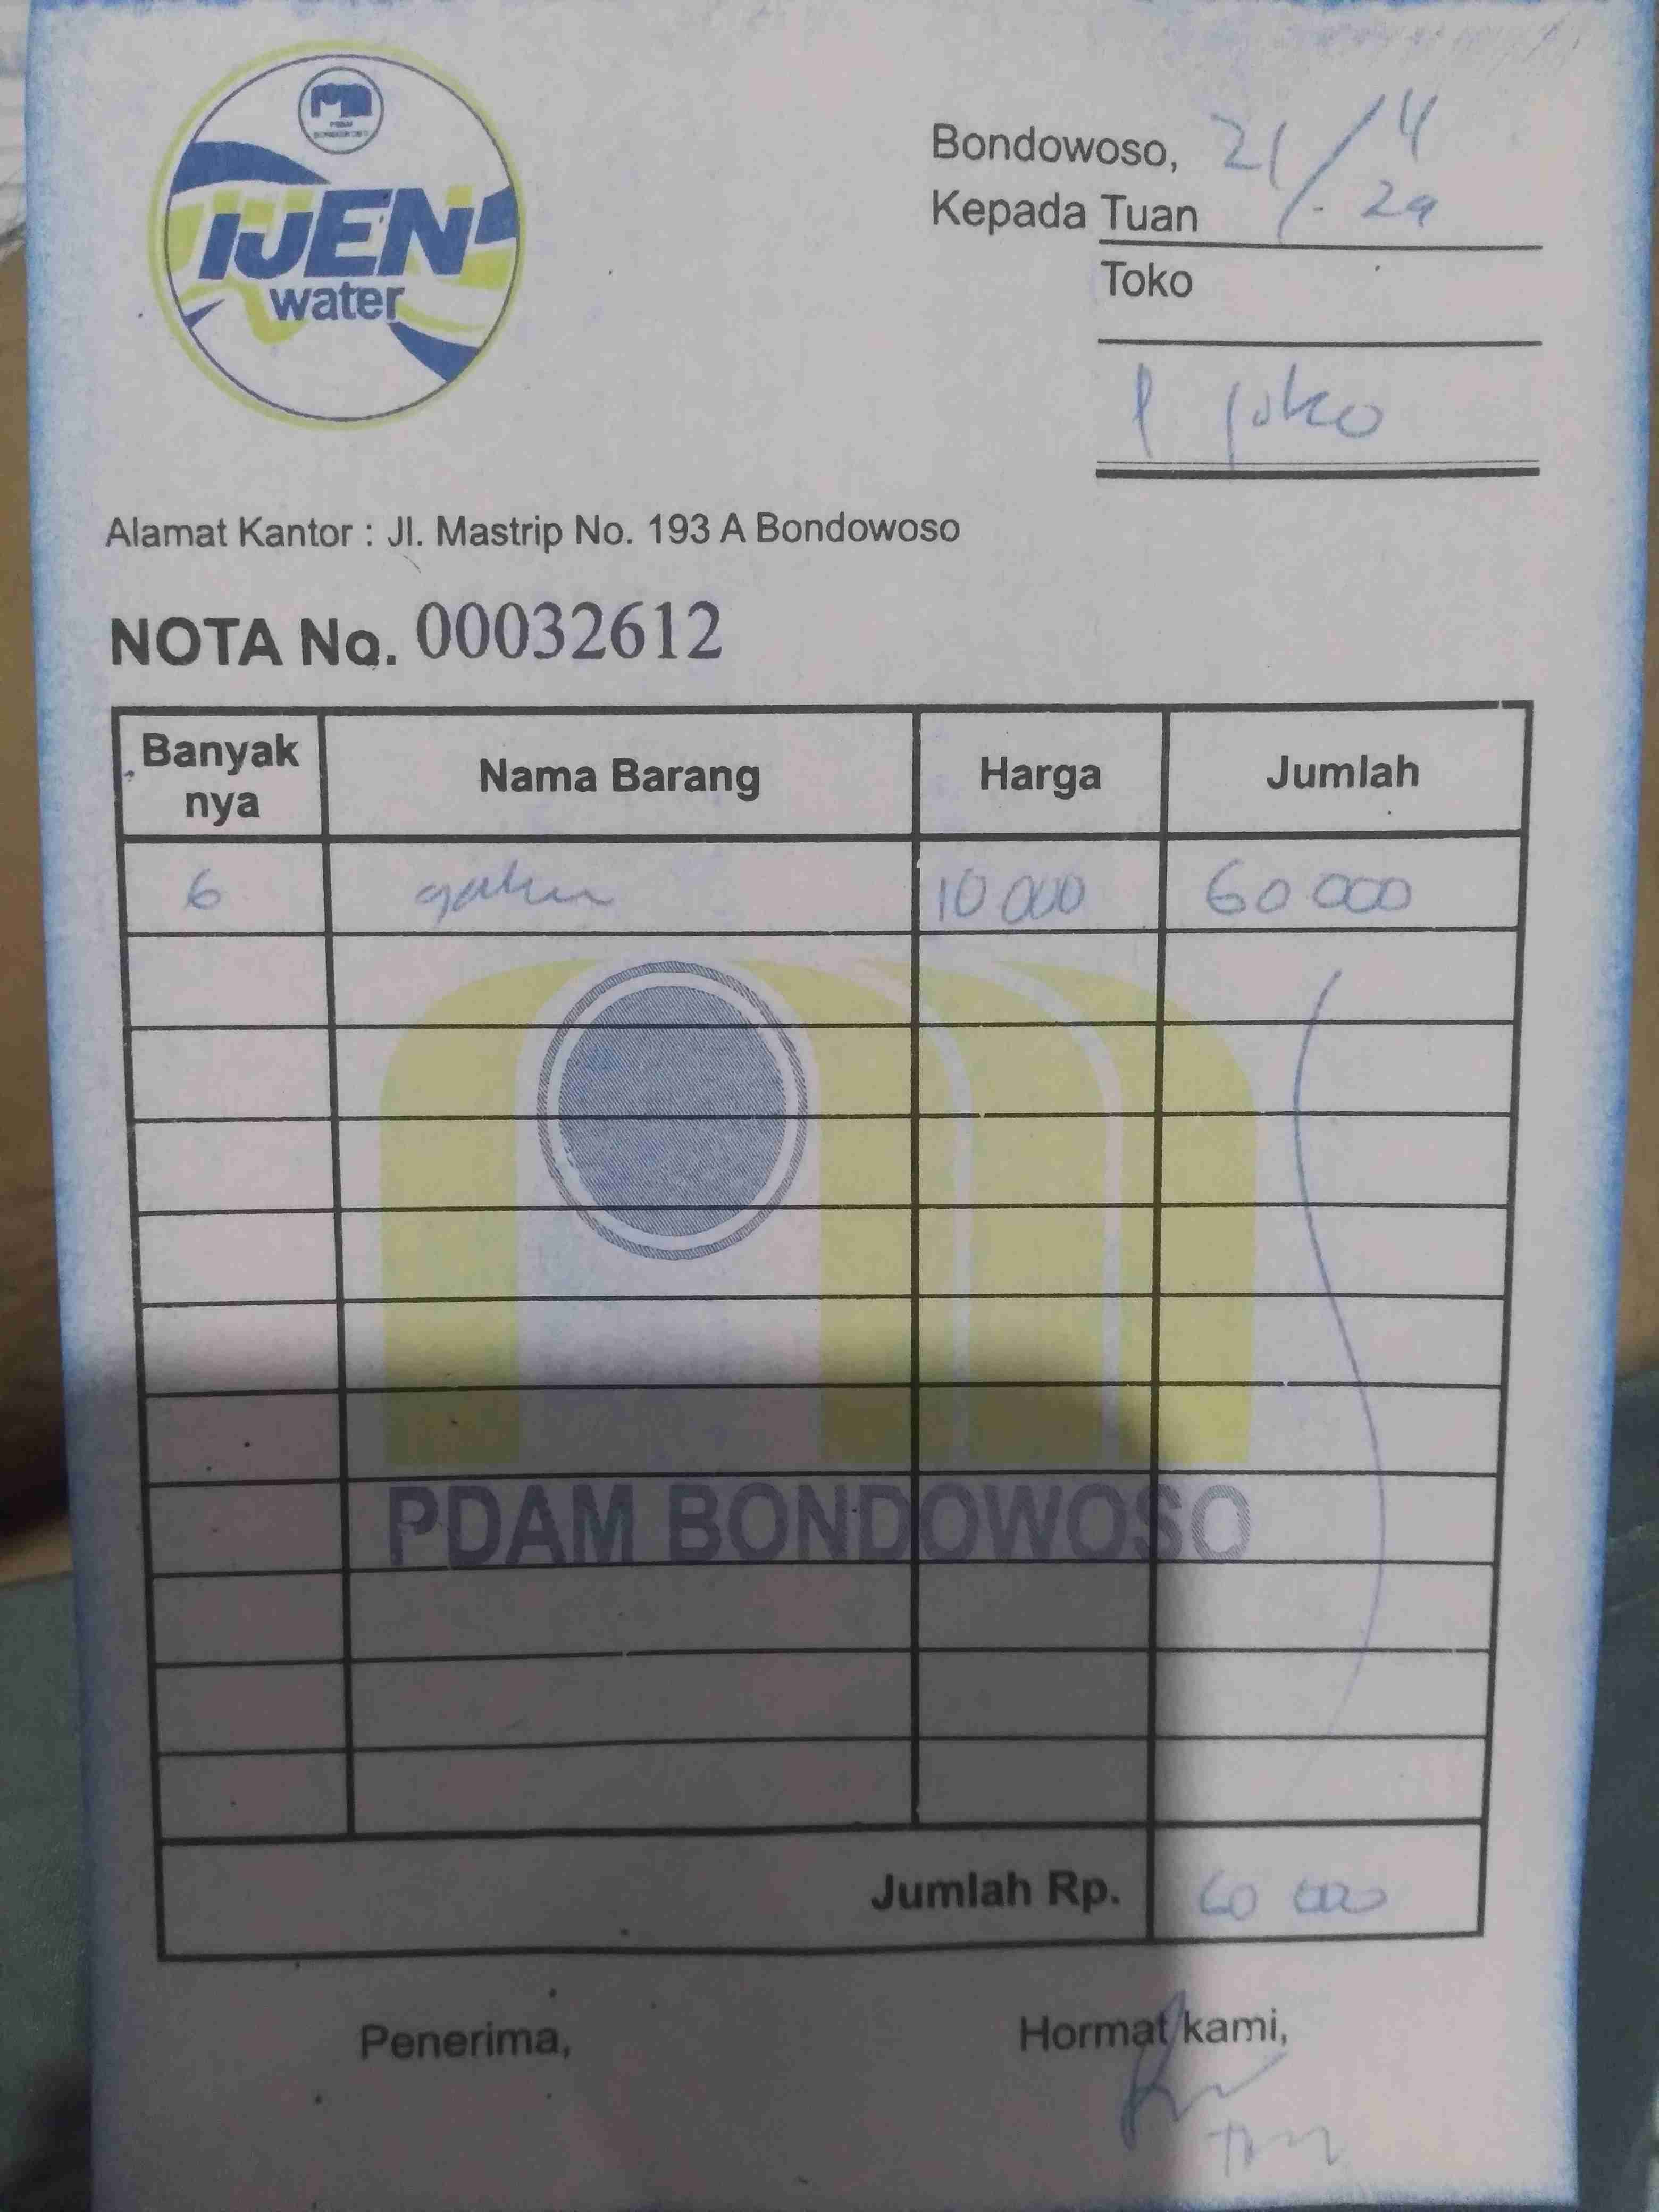 PDAM
BONDOWOSO
IJEN
water
Bondowoso, 21/4
Kepada Tuan
Toko
P joko
Alamat Kantor : Jl. Mastrip No. 193 A Bondowoso
NOTA No. 00032612
Banyak nya Nama Barang Harga Jumlah
6 galon 10 000 60 000
PDAM BONDOWOSO
Jumlah Rp. 60 000
Penerima, Hormat kami,